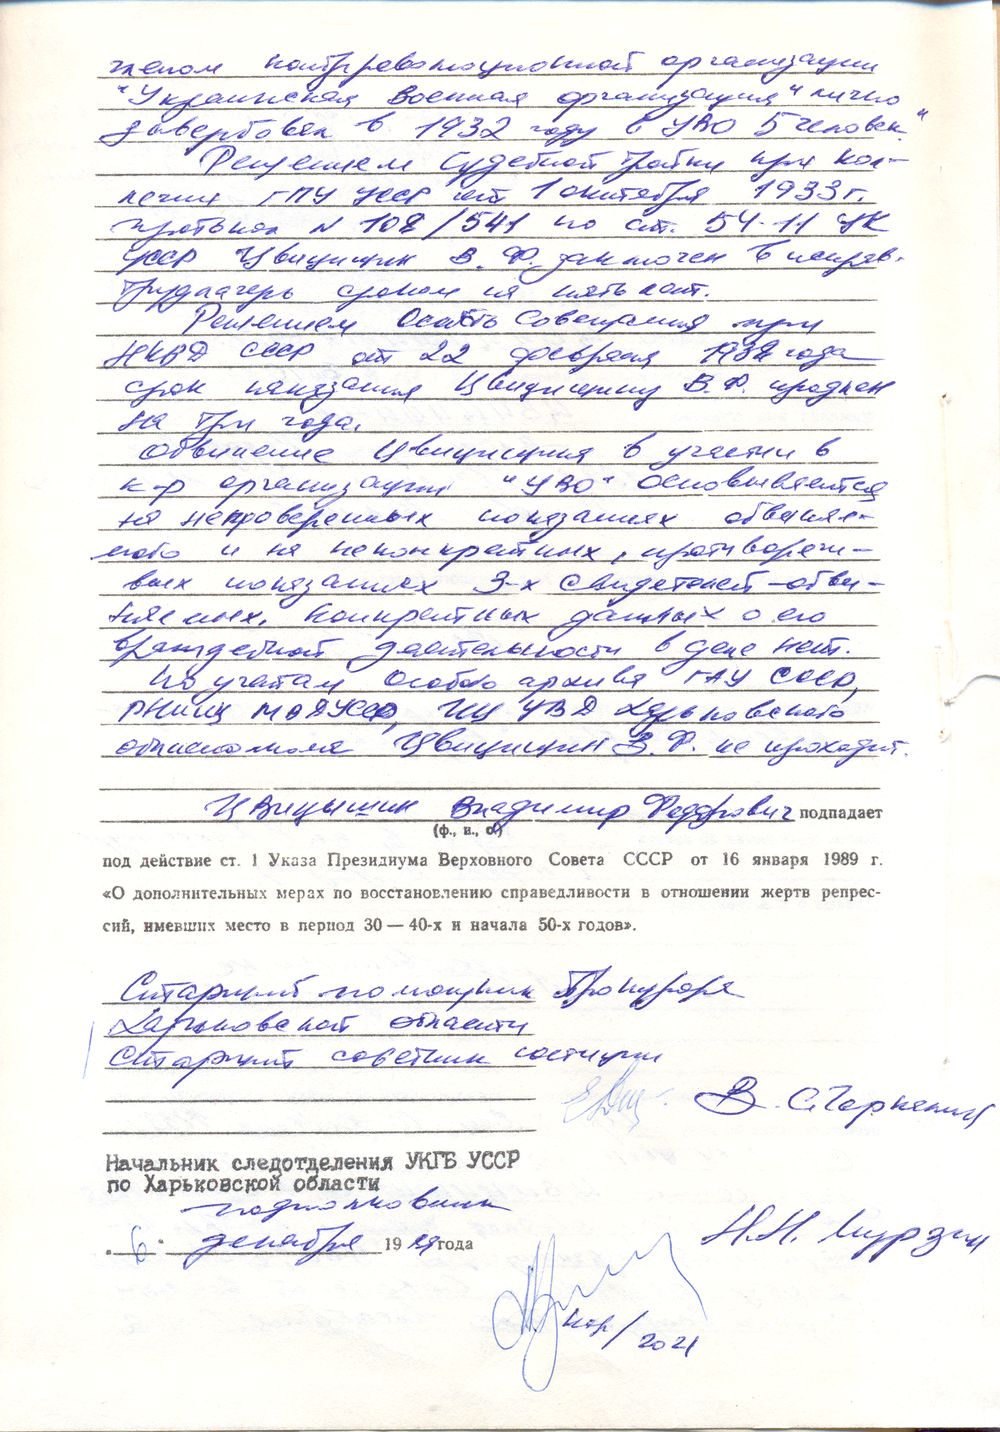 членом контрреволюционной организации
"Украинская военная организация" лично
завербовал в 1932 году в УВО 5 человек."
Решением Судебной тройки при кол-
легии ГПУ УССР от 1 октября 1933 г.
протокол N 108/541 по ст. 54-11 УК
УССР Цвицишин В. Ф. заключен в исправ.
трудлагерь сроком на пять лет.
Решением Особ. Совещания при
НКВД СССР от 22 февраля 1938 года
срок наказания Цвицишину В.Ф. продлен
на три года.
Обвинение Цвицишина в участии в
к-р организации "УВО" основывается
на непроверенных показаниях обвиняе-
мого и на неконкретных, противоречи-
вых показаниях 3-х свидетелей-обви-
няемых. Конкретных данных о его
враждебной деятельности в деле нет.
По учетам Особого архива ГАУ СССР,
РНИИЦ МО СССР, ИЦ УВД Харьковского
облисполкома Цвицишин В. Ф. не проходит.
Цвицышин Владимир Федорович подпадает
(ф., и., о.)
под действие ст. 1 Указа Президиума Верховного Совета СССР от 16 января 1989 г.
«О дополнительных мерах по восстановлению справедливости в отношении жертв репрес-
сий, имевших место в период 30—40-х и начала 50-х годов».
Старший помощник Прокурора
Харьковской области
Старший советник юстиции
В. С.
Начальник следотделения УКГБ УССР
по Харьковской области
подполковник
Н.Н. Мурзин
"6" декабря 1989 года
/2021